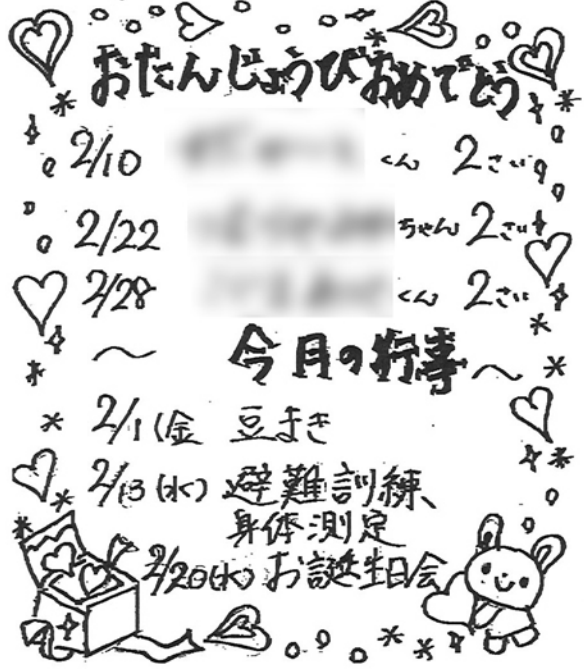 おたんじょうびおめでとう
2/10 くん 2さい
2/22 ちゃん 2さい
2/28 くん 2さい
〜 今月の行事 〜
2/1(金) 豆まき
2/13(水) 避難訓練、
身体測定
2/20(水) お誕生日会